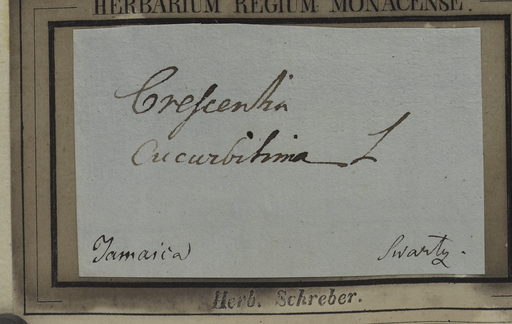 HERBARIUM REGIUM MONACENSE.
Crescentia
Cucurbitina L
Jamaica Swartz.
Herb. Schreber.